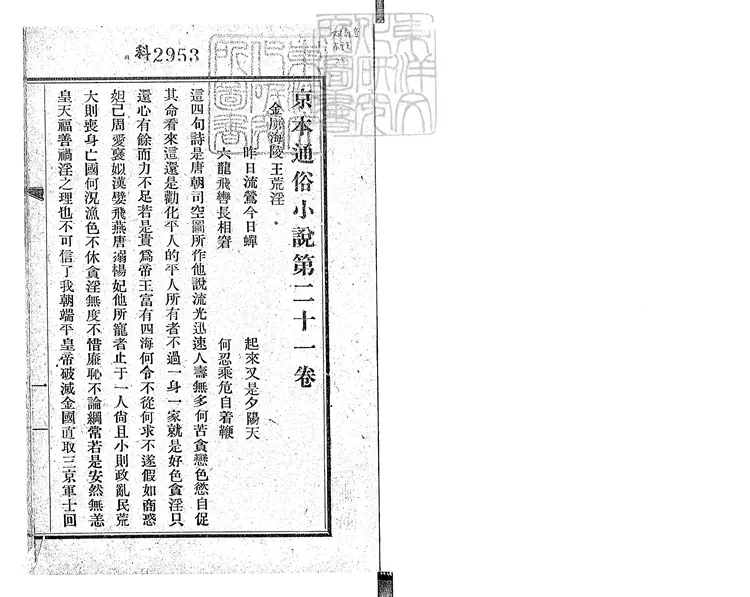 科2953
京本通俗小說第二十一卷
金虜海陵王荒淫
昨日流鶯今日蟬 起來又是夕陽天
六龍飛轡長相窘 何忍乘危自着鞭
這四句詩是唐朝司空圖所作他說流光迅速人壽無多何苦貪戀色慾自促
其命看來這還是勸化平人的平人所有者不過一身一家就是好色貪淫只
還心有餘而力不足若是貴爲帝王富有四海何令不從何求不遂假如商惑
妲己周愛褒姒漢嬖飛燕唐溺楊妃他所寵者止于一人尙且小則政亂民荒
大則喪身亡國何況漁色不休貪淫無度不惜廉恥不論綱常若是安然無恙
皇天福善禍淫之理也不可信了我朝端平皇帝破滅金國直取三京軍士回
一